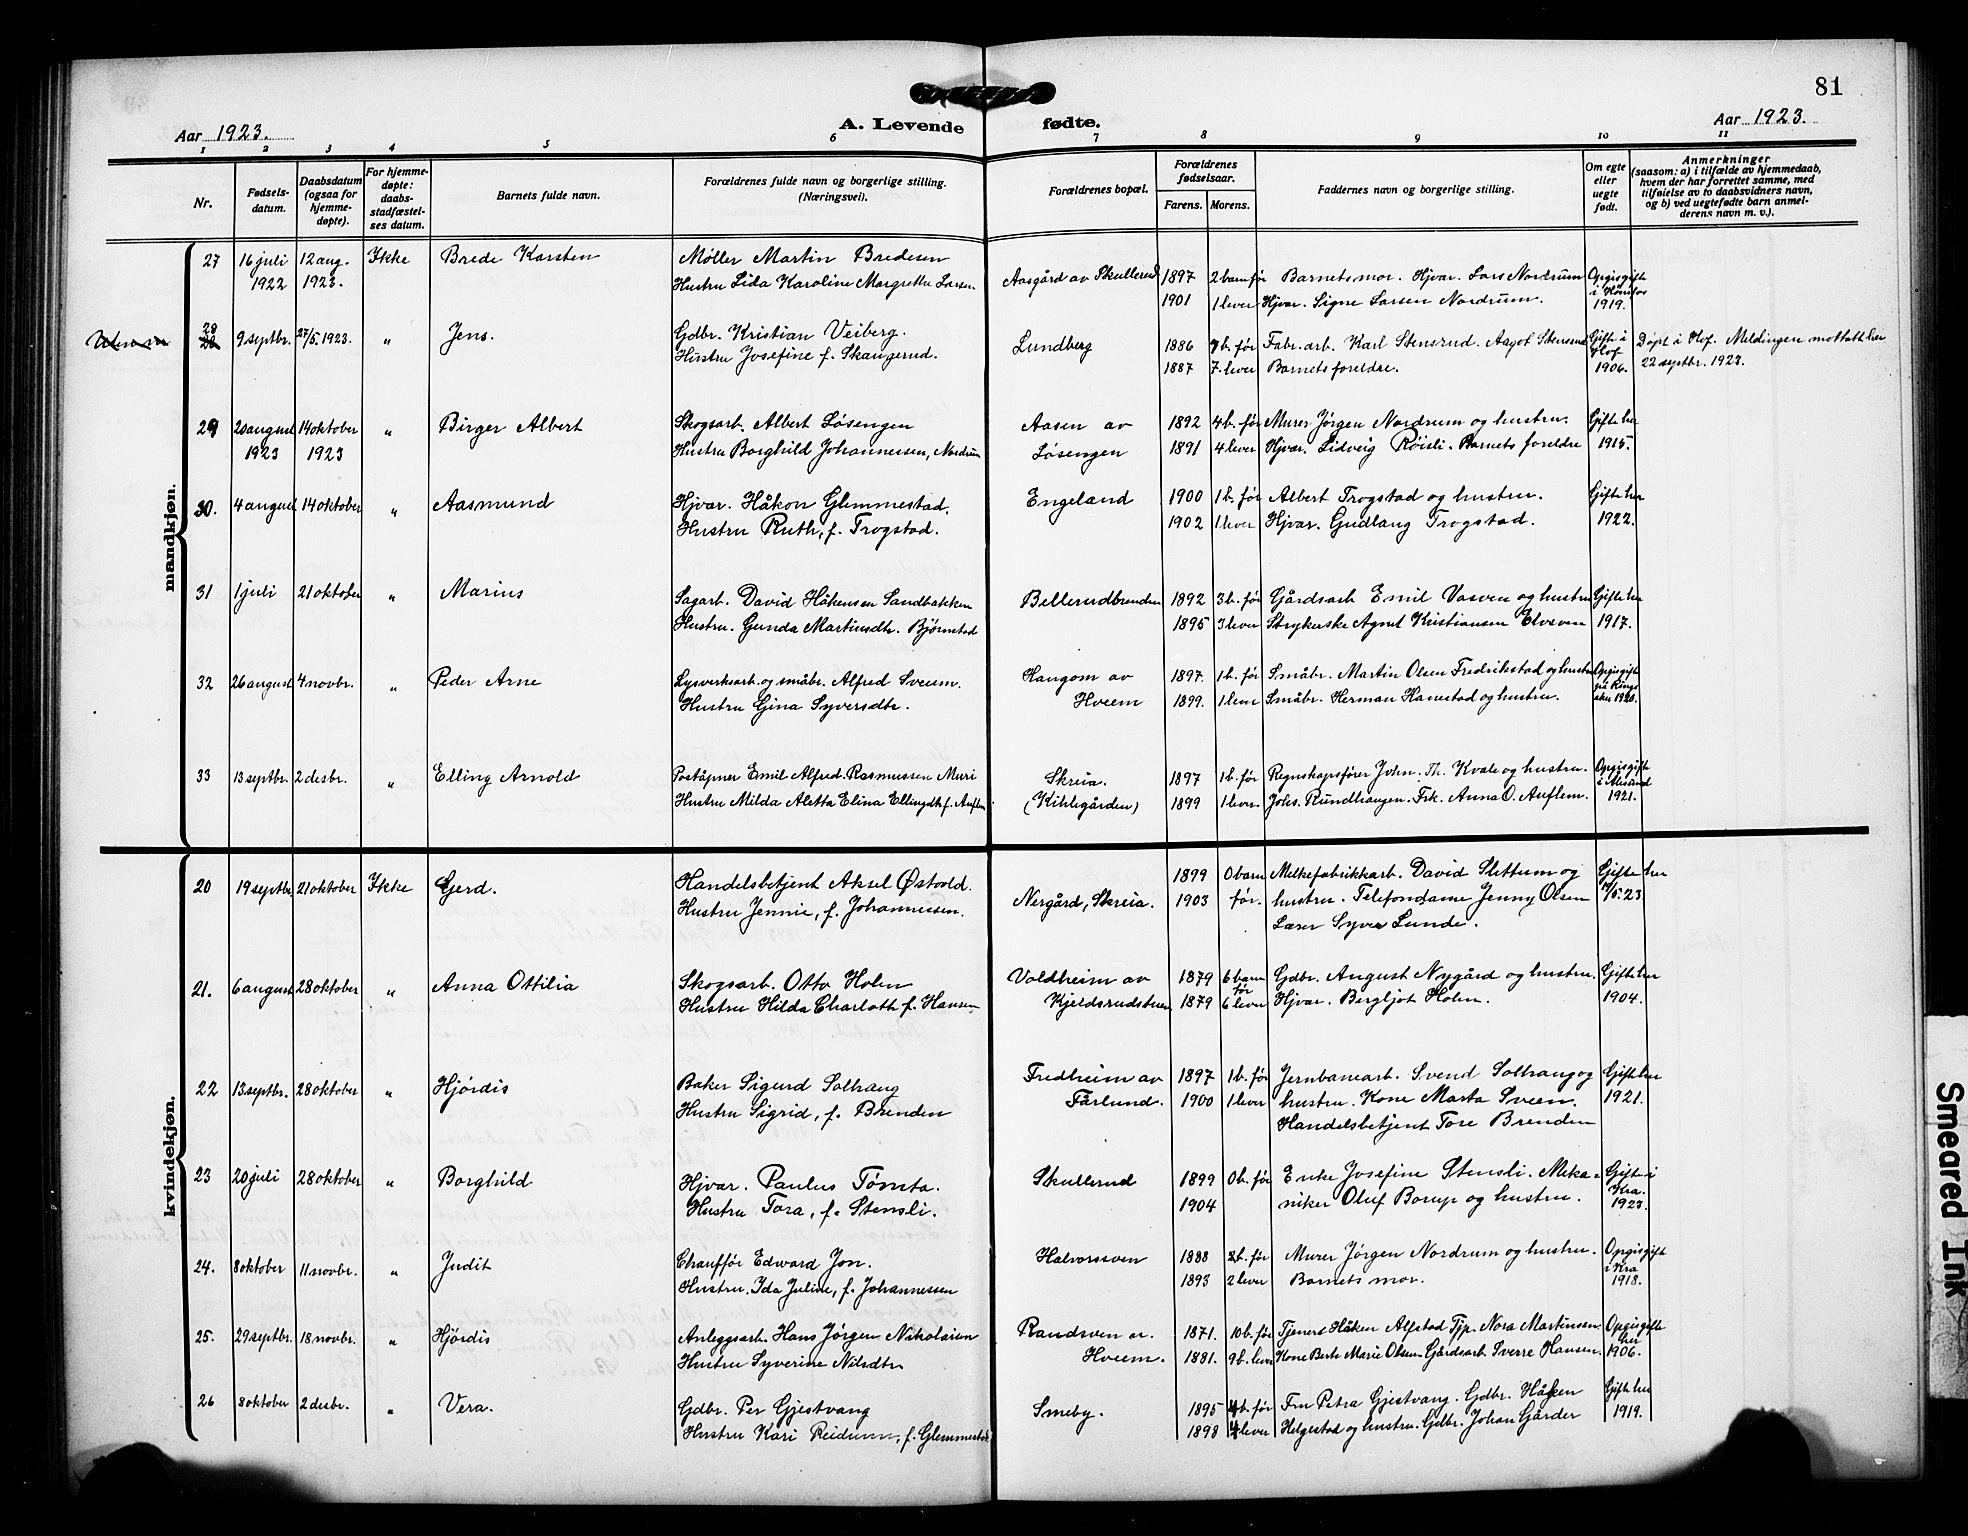 81
Aar 1923.
A. Levende fødte.
Aar 1923.
1 2 3 4 5 6 7 8 9 10 11
Nr.
Fødsels-
datum.
Daabsdatum
(ogsaa for
hjemme-
døpte).
For hjemme-
døpte:
daabs-
stadfæstel-
ses datum.
Barnets fulde navn.
Forældrenes fulde navn og borgerlige stilling.
(Næringsvei).
Forældrenes bopæl.
Forældrenes
fødselsaar.
Farens. Morens.
Faddernes navn og borgerlige stilling.
Om egte
eller
uegte
født.
Anmerkninger
(saasom: a) i tilfælde av hjemmedaab,
hvem der har forrettet samme, med
tilføielse av to daabsvidners navn,
og b) ved uegtefødte barn anmel-
derens navn m. v.).
mandkjøn.
27 16 juli 12 aug. Ikke Brede Karsten Møller Martin Bredesen Aasgård av Skullerud 1897 2 barn før Barnets mor. Hjvar. Lars Nordrum Opgisgifte
1922 1923. Hustru Lida Karoline Margrethe Larsen 1901 1 lever Hjvar. Signe Larsen Nordrum. i Hønefos
1919.
28 9 septbr. 27/5. 1923. " Jens. Gdbr. Kristian Veiberg. Lundberg 1886 7 b. før Fabr. arb. Karl Stensrud. Aagot Stensrud Gifte i Døpt i Hof. Meldingen mottatt her
Hustru Josefine f. Skaugerud. 1887 7 lever Barnets foreldre. Hof 22 septbr. 1923.
1906.
29 20 august 14 oktober " Birger Albert Skogsarb. Albert Løsengen Aasen av 1892 4 b. før Murer Jørgen Nordrum og hustru. Gifte her
1923 1923 Hustru Borghild Johannessen, Nordrum Løsengen 1891 4 lever Hjvar. Lidveig Røisli. Barnets foreldre 1915.
30. 4 august 14 oktober " Aasmund Hjvar. Håkon Glemmestad. Engeland 1900 1 b. før Albert Trogstad og hustru. Gifte her
Hustru Ruth, f. Trogstad. 1902 1 lever Hjvar. Gudlaug Trogstad. 1922.
31 1 juli 21 oktober " Marius Sagarb. David Håkensen Sandbakken Billerudbrenden 1892 3 b. før Gårdsarb Emil Vasven og hustru Gifte her
Hustru. Gunda Martinsdtr. Bjørnstad 1895 3 lever Strykerske Agnet Kristiansen Elveven 1917.
32 26 august 4 novbr. " Peder Arne Lysverksarb. og småbr. Alfred Sveum. Haugom av 1897. 1 b. før Småbr. Martin Olsen Fredrikstad og hustru Opgisgift
Hustru Gina Syversdtr. Hveem 1899. 1 lever Småbr. Herman Hanestad og hustru. på Rings
aker 1920.
33 13 septbr. 2 desbr. " Elling Arnold Poståpner Emil Alfred Rasmussen Muri Skreia. 1897 1 b. før Regnskapsfører John. Th. Kvale og hustru. Opgisgifte
Hustru Milda Aletta Elina Ellingdtr f. Auflem (Kihlegården) 1899 1 lever Johs. Rundhaugen. Frk. Anna O. Auflem. i Ålesund
1921.
kvindekjøn.
20 19 septbr 21 oktober Ikke Gerd. Handelsbetjent Aksel Østvold. Nergård, Skreia. 1899 0 barn Melkefabrikkarb. David Slettum og Gifte her
Hustru Jennie, f. Johannessen. 1903 før. hustru. Telefondame Jenny Olsen /5. 23
Læser Syver Lunde.
21. 6 august 28 oktober " Anna Ottilia Skogsarb. Otto Holm Voldheim av 1879 6 barn Gdbr. August Nygård og hustru. Gifte her
Hustru Hilda Charloth f. Hansen Kjeldsrudstuen 1879 før 6 lever Hjvar. Bergljot Holm. 1904.
22 13 septbr. 28 oktober " Hjørdis Baker Sigurd Solhaug Fredheim av 1897 1 b. før Jernbanearb. Svend Solhaug og Gifte her
Hustru Sigrid, f. Brenden Farlund. 1900 1 lever hustru. Kone Marta Sveen. 1921.
Handelsbetjent Tore Brenden
23 20 juli 28 oktober " Borghild Hjvar. Paulus Tømta. Skullerud 1899 0 b. før Enke Josefine Stensli. Meka- Gifte i
Hustru Tora, f. Stensli. 1904 niker Oluf Borup og hustru. Kra.
1923.
24. 8 oktober 11 novbr. " Judit Chauffør Edward Jon. Halvorssven 1888 2 b. før Murer Jørgen Nordrum og hustru. Opgisgift
Hustru. Ida Juline, f. Johannessen 1893 2 lever Barnets mor. i Kra
1918.
25. 29 septbr. 18 novbr. " Hjørdis Anleggsarb. Hans Jørgen Nikolaisen Randsven av. 1871. 10 b. før Tjener Håken Alfstad Tjp. Nora Martinsen. Opgisgifte
Hustru Syverine Nilsdtr Hveem. 1881. 9 b. lever Kone Berte Marie Olsen Gårdsarb Sverre Hansen. her 1906.
26 8 oktober 2 desbr. " Vera. Gdbr. Per Gjestvang Smeby. 1895 4 b. før Fru Petra Gjestvang. Gdbr. Håken Gifte her
Hustru Kari Reidunn, f. Glemmestad 1898 4 lever Helgestad og hustru. Gdbr. Johan Gårder 1919.
Smeared Ink